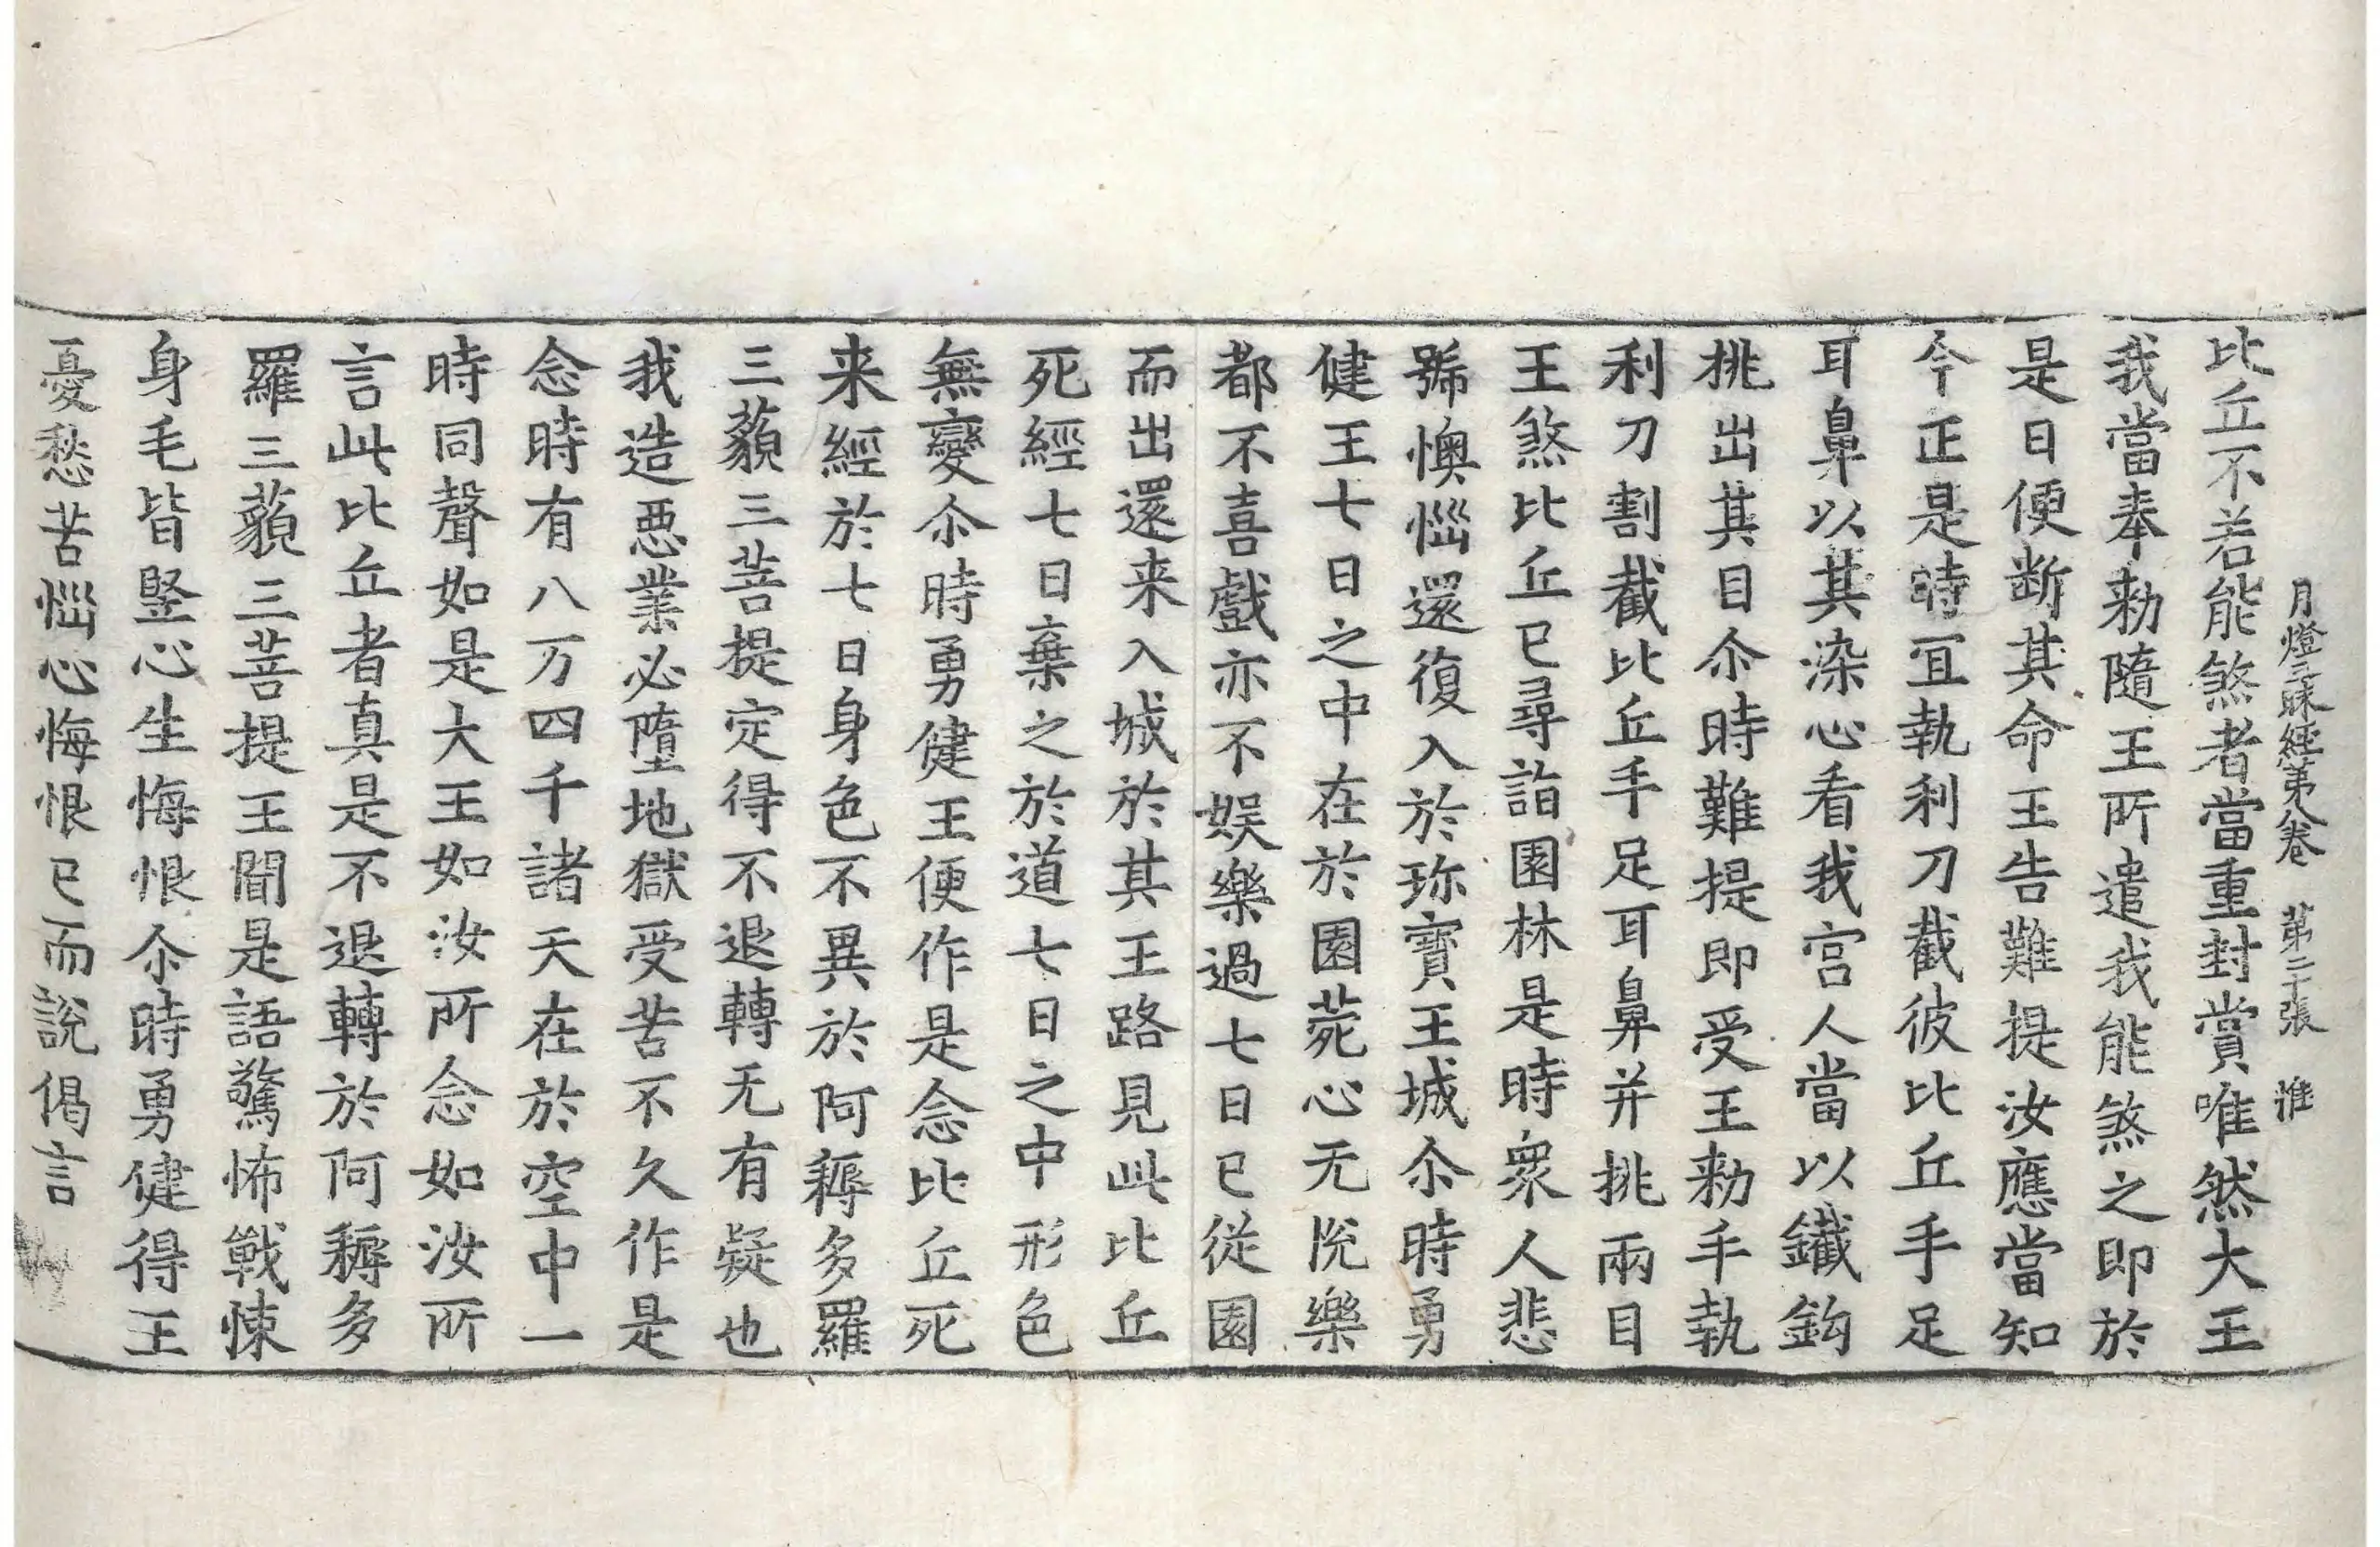 月燈三昧經第八卷　第二十張　淮
比丘不若能煞者當重封賞唯然大王
我當奉勑隨王所遣我能煞之即於
是日便断其命王告難提汝應當知
今正是時冝執利刀截彼比丘手足
耳鼻以其染心看我宫人當以鐵鈎
挑出其目尒時難提即受王勑手執
利刀割截比丘手足耳鼻并挑兩目
王煞比丘已尋詣園林是時衆人悲
號懊惱還復入於珎寳王城尒時勇
健王七日之中在於園菀心无恱樂
都不喜戲亦不娱樂過七日已從園
而出還来入城於其王路見此比丘
死經七日棄之於道七日之中形色
無變尒時勇健王便作是念比丘死
来經於七日身色不異於阿耨多羅
三藐三菩提定得不退轉无有疑也
我造惡業必墮地獄受苦不久作是
念時有八万四千諸天在於空中一
時同聲如是大王如汝所念如汝所
言此比丘者真是不退轉於阿耨多
羅三藐三菩提王聞是語驚怖戰悚
身毛皆竪心生悔恨尒時勇健得王
憂愁苦惱心悔恨已而說偈言